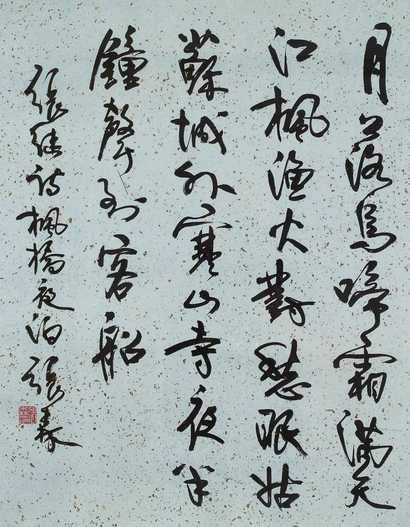 月落烏啼霜滿天
江楓漁火對愁眠姑
蘇城外寒山寺夜半
鐘聲到客船
張繼詩楓橋夜泊張森